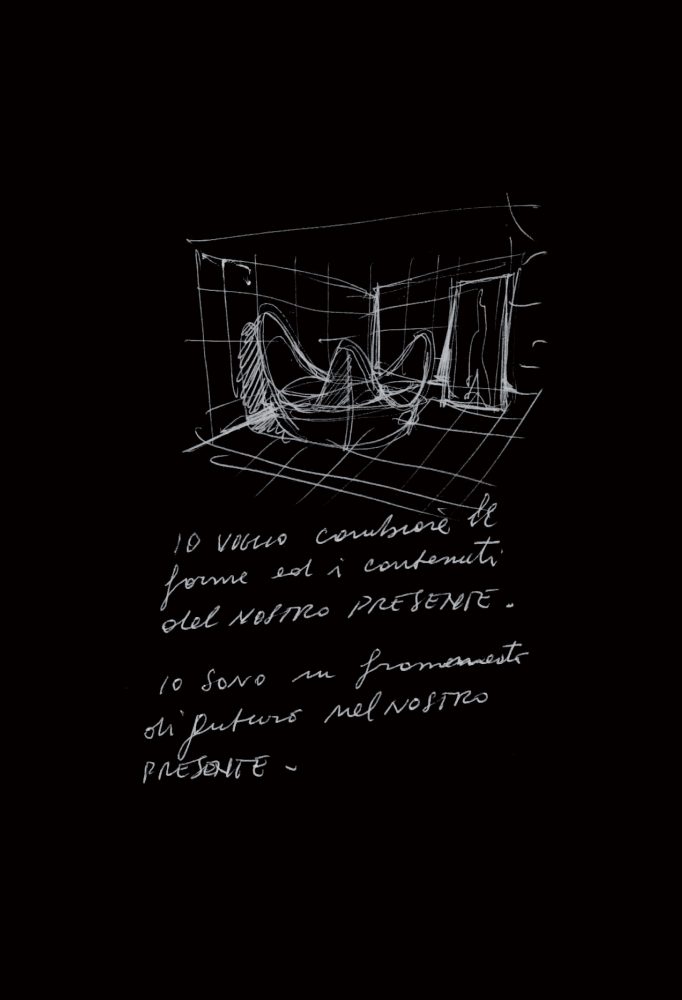 IO VOGLIO cambiare le
forme ed i contenuti
del NOSTRO PRESENTE.
IO SONO un frammento
di futuro nel NOSTRO
PRESENTE.